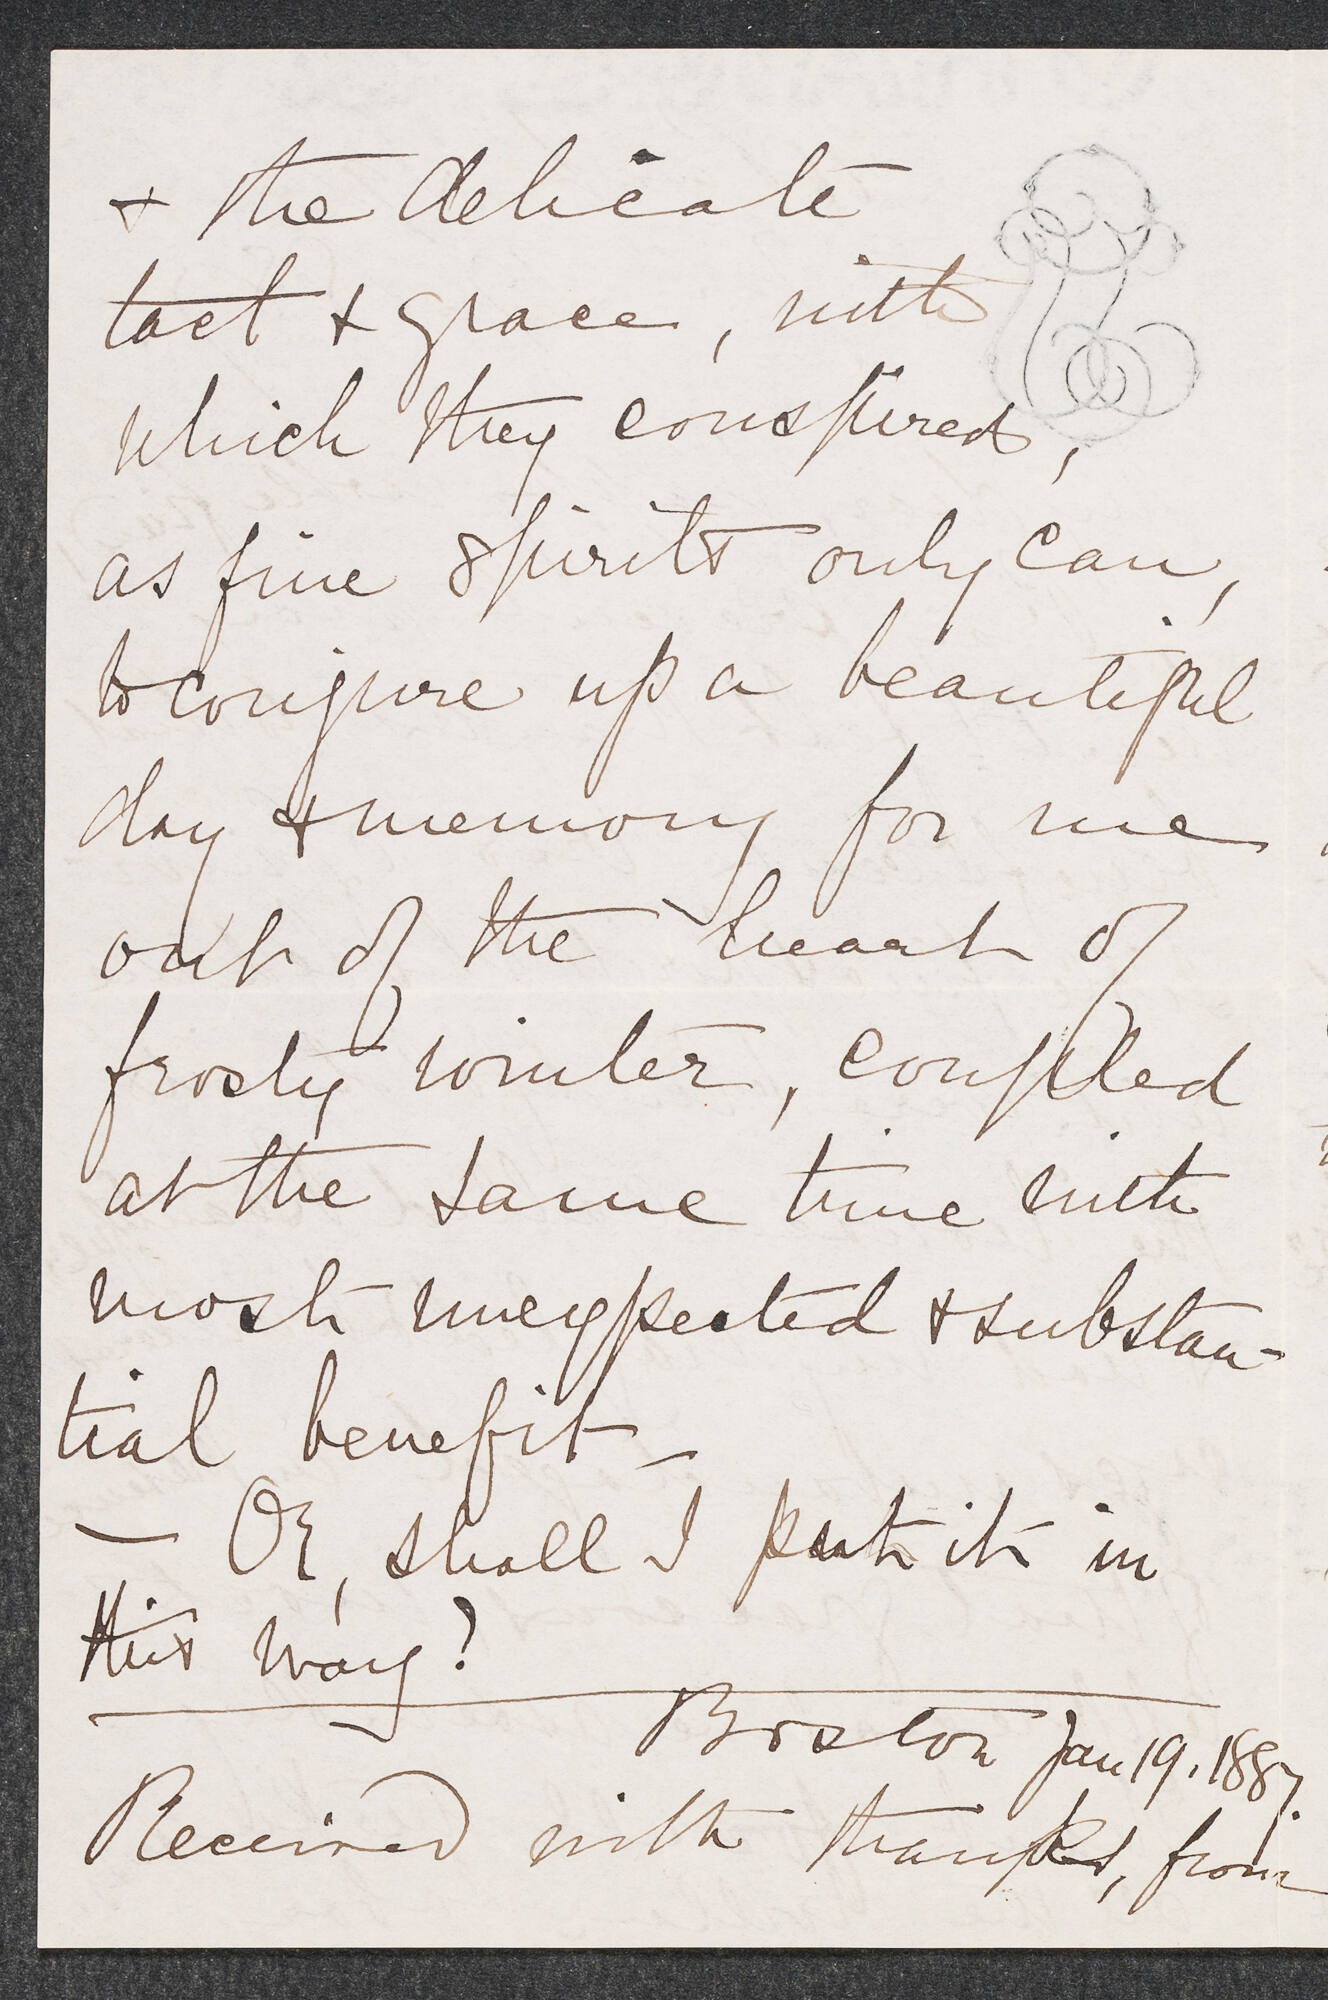 & the delicate
tact & grace, with
which they conspired,
as fine spirits only can,
to conjure up a beautiful
day & memory for me
out of the heart of
frosty winter, coupled
at the same time with
most unexpected & substan-
tial benefit –
– Or, shall I put it in
this way?
Boston Jan 19. 1887.
Received with thanks, from